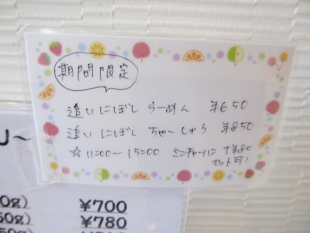 期間限定
追いにぼし らーめん ¥650
追いにぼし ちゃーしゅう ¥850
☆ 11:00～15:00 ミニチャーハン ¥80
セット可！
リ～
0g) ¥700
50g) ¥780